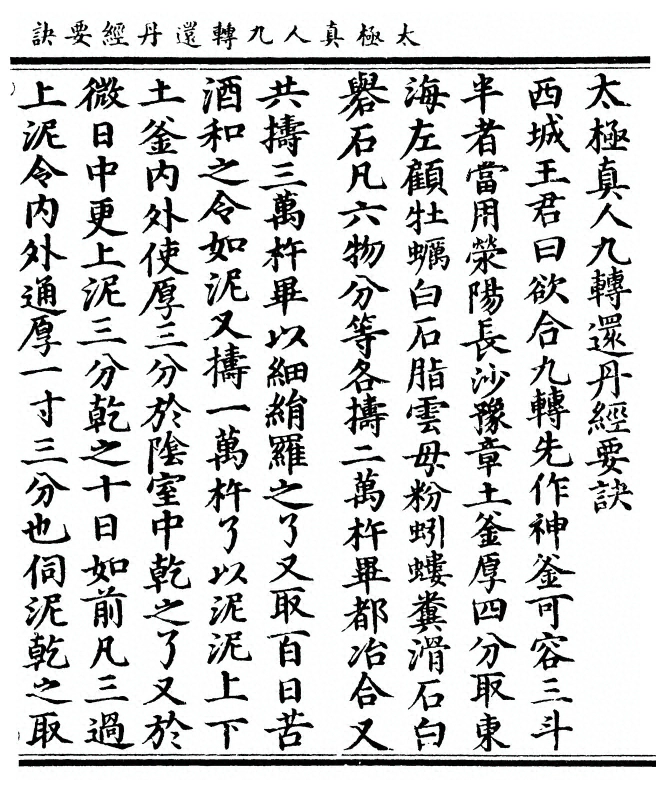 太極真人九轉還丹經要訣
太極真人九轉還丹經要訣
西城王君曰欲合九轉先作神釜可容三斗
半者當用滎陽長沙豫章土釜厚四分取東
海左顧牡蠣白石脂雲母粉蚓螻糞滑石白
礜石凡六物分等各擣二萬杵畢都冶合又
共擣三萬杵畢以細絹羅之了又取百日苦
酒和之令如泥又擣一萬杵了以泥泥上下
土釜內外使厚三分於陰室中乾之了又於
微日中更上泥三分乾之十日如前凡三過
上泥令內外通厚一寸三分也伺泥乾之取